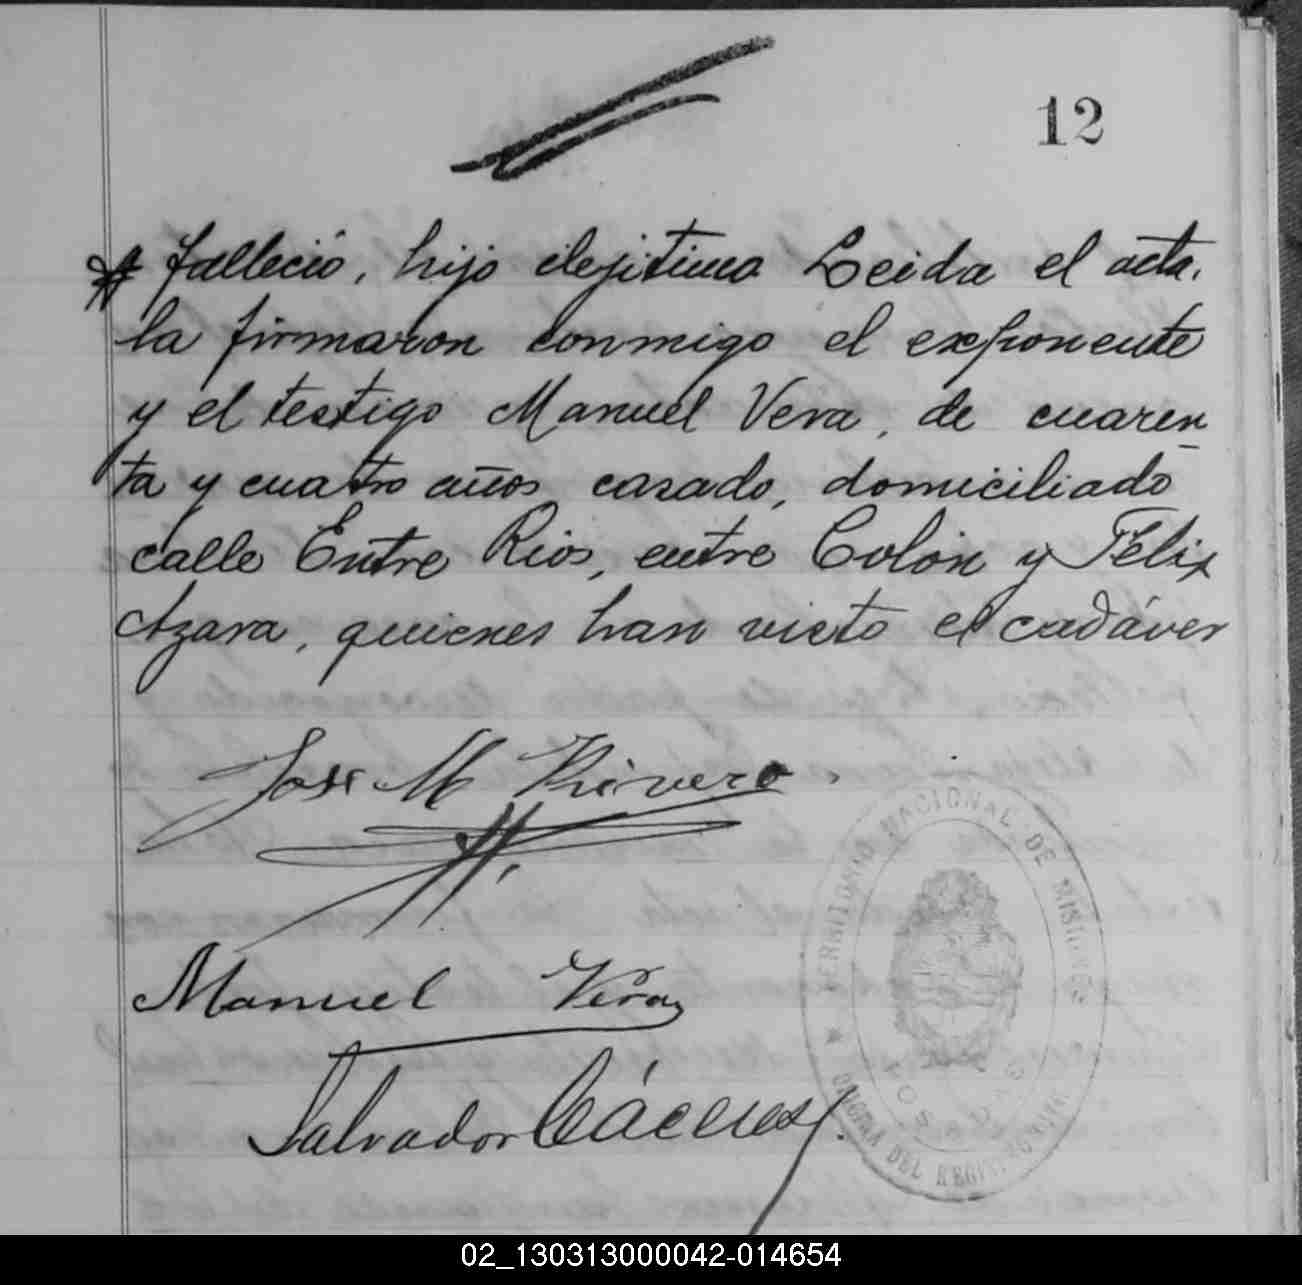 12
falleció, hijo ilejitimo Leida el acta,
la firmaron conmigo el exponente
y el testigo Manuel Vera, de cuaren
ta y cuatro años, casado, domiciliado
calle Entre Rios, entre Colón y Félix
Azara, quienes han visto el cadáver
José M Rivero.
Manuel Vera
Salvador Cáceres
TERRITORIO NACIONAL DE MISIONES
POSADAS
OFICINA DEL REGISTRO CIVIL
02_130313000042-014654